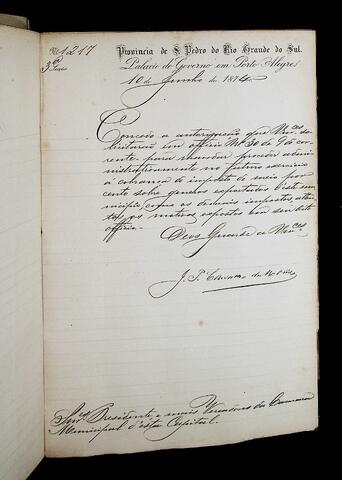 Nº 1217
3ª Secção
Provincia de S. Pedro do Rio Grande do Sul.
Palacio do Governo em Porto Alegre
10 de Junho de 1874
Concedo a autorisação que Vmces. so-
licitarão em officio Nº 30 de 9 do cor-
rente, para mandar proceder admi-
nistrativamente no futuro exercicio
a cobrança do imposto de meio por
cento sobre generos exportados deste mu-
nicipio, como os demais impostos, atten-
tos os motivos expostos em seu dito
officio.
Deos Guarde a Vmces
J. P. Carvalho de Moraes
Snrs. Presidente e mais Vereadores da Camara
Municipal d'esta Capital.